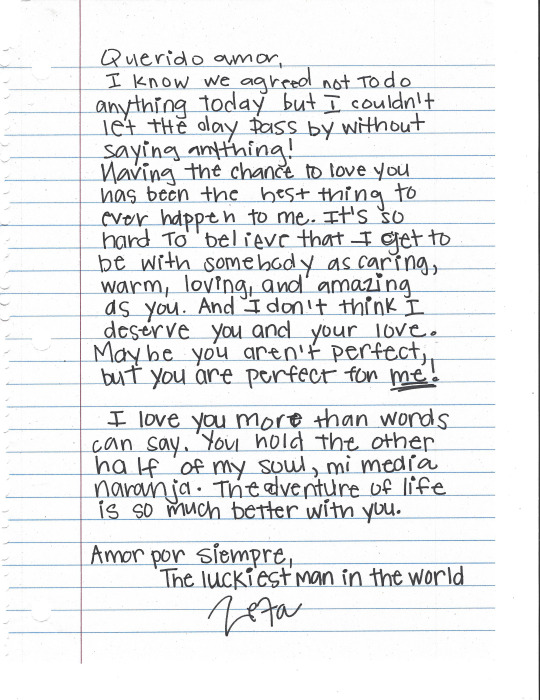 Querido amor,
I know we agreed not to do
anything today but I couldn't
let the day pass by without
saying anything!
Having the chance to love you
has been the best thing to
ever happen to me. It's so
hard to believe that I get to
be with somebody as caring,
warm, loving, and amazing
as you. And I don't think I
deserve you and your love.
Maybe you aren't perfect,
but you are perfect for me!
I love you more than words
can say. You hold the other
half of my soul, mi media
naranja. The adventure of life
is so much better with you.
Amor por siempre,
The luckiest man in the world